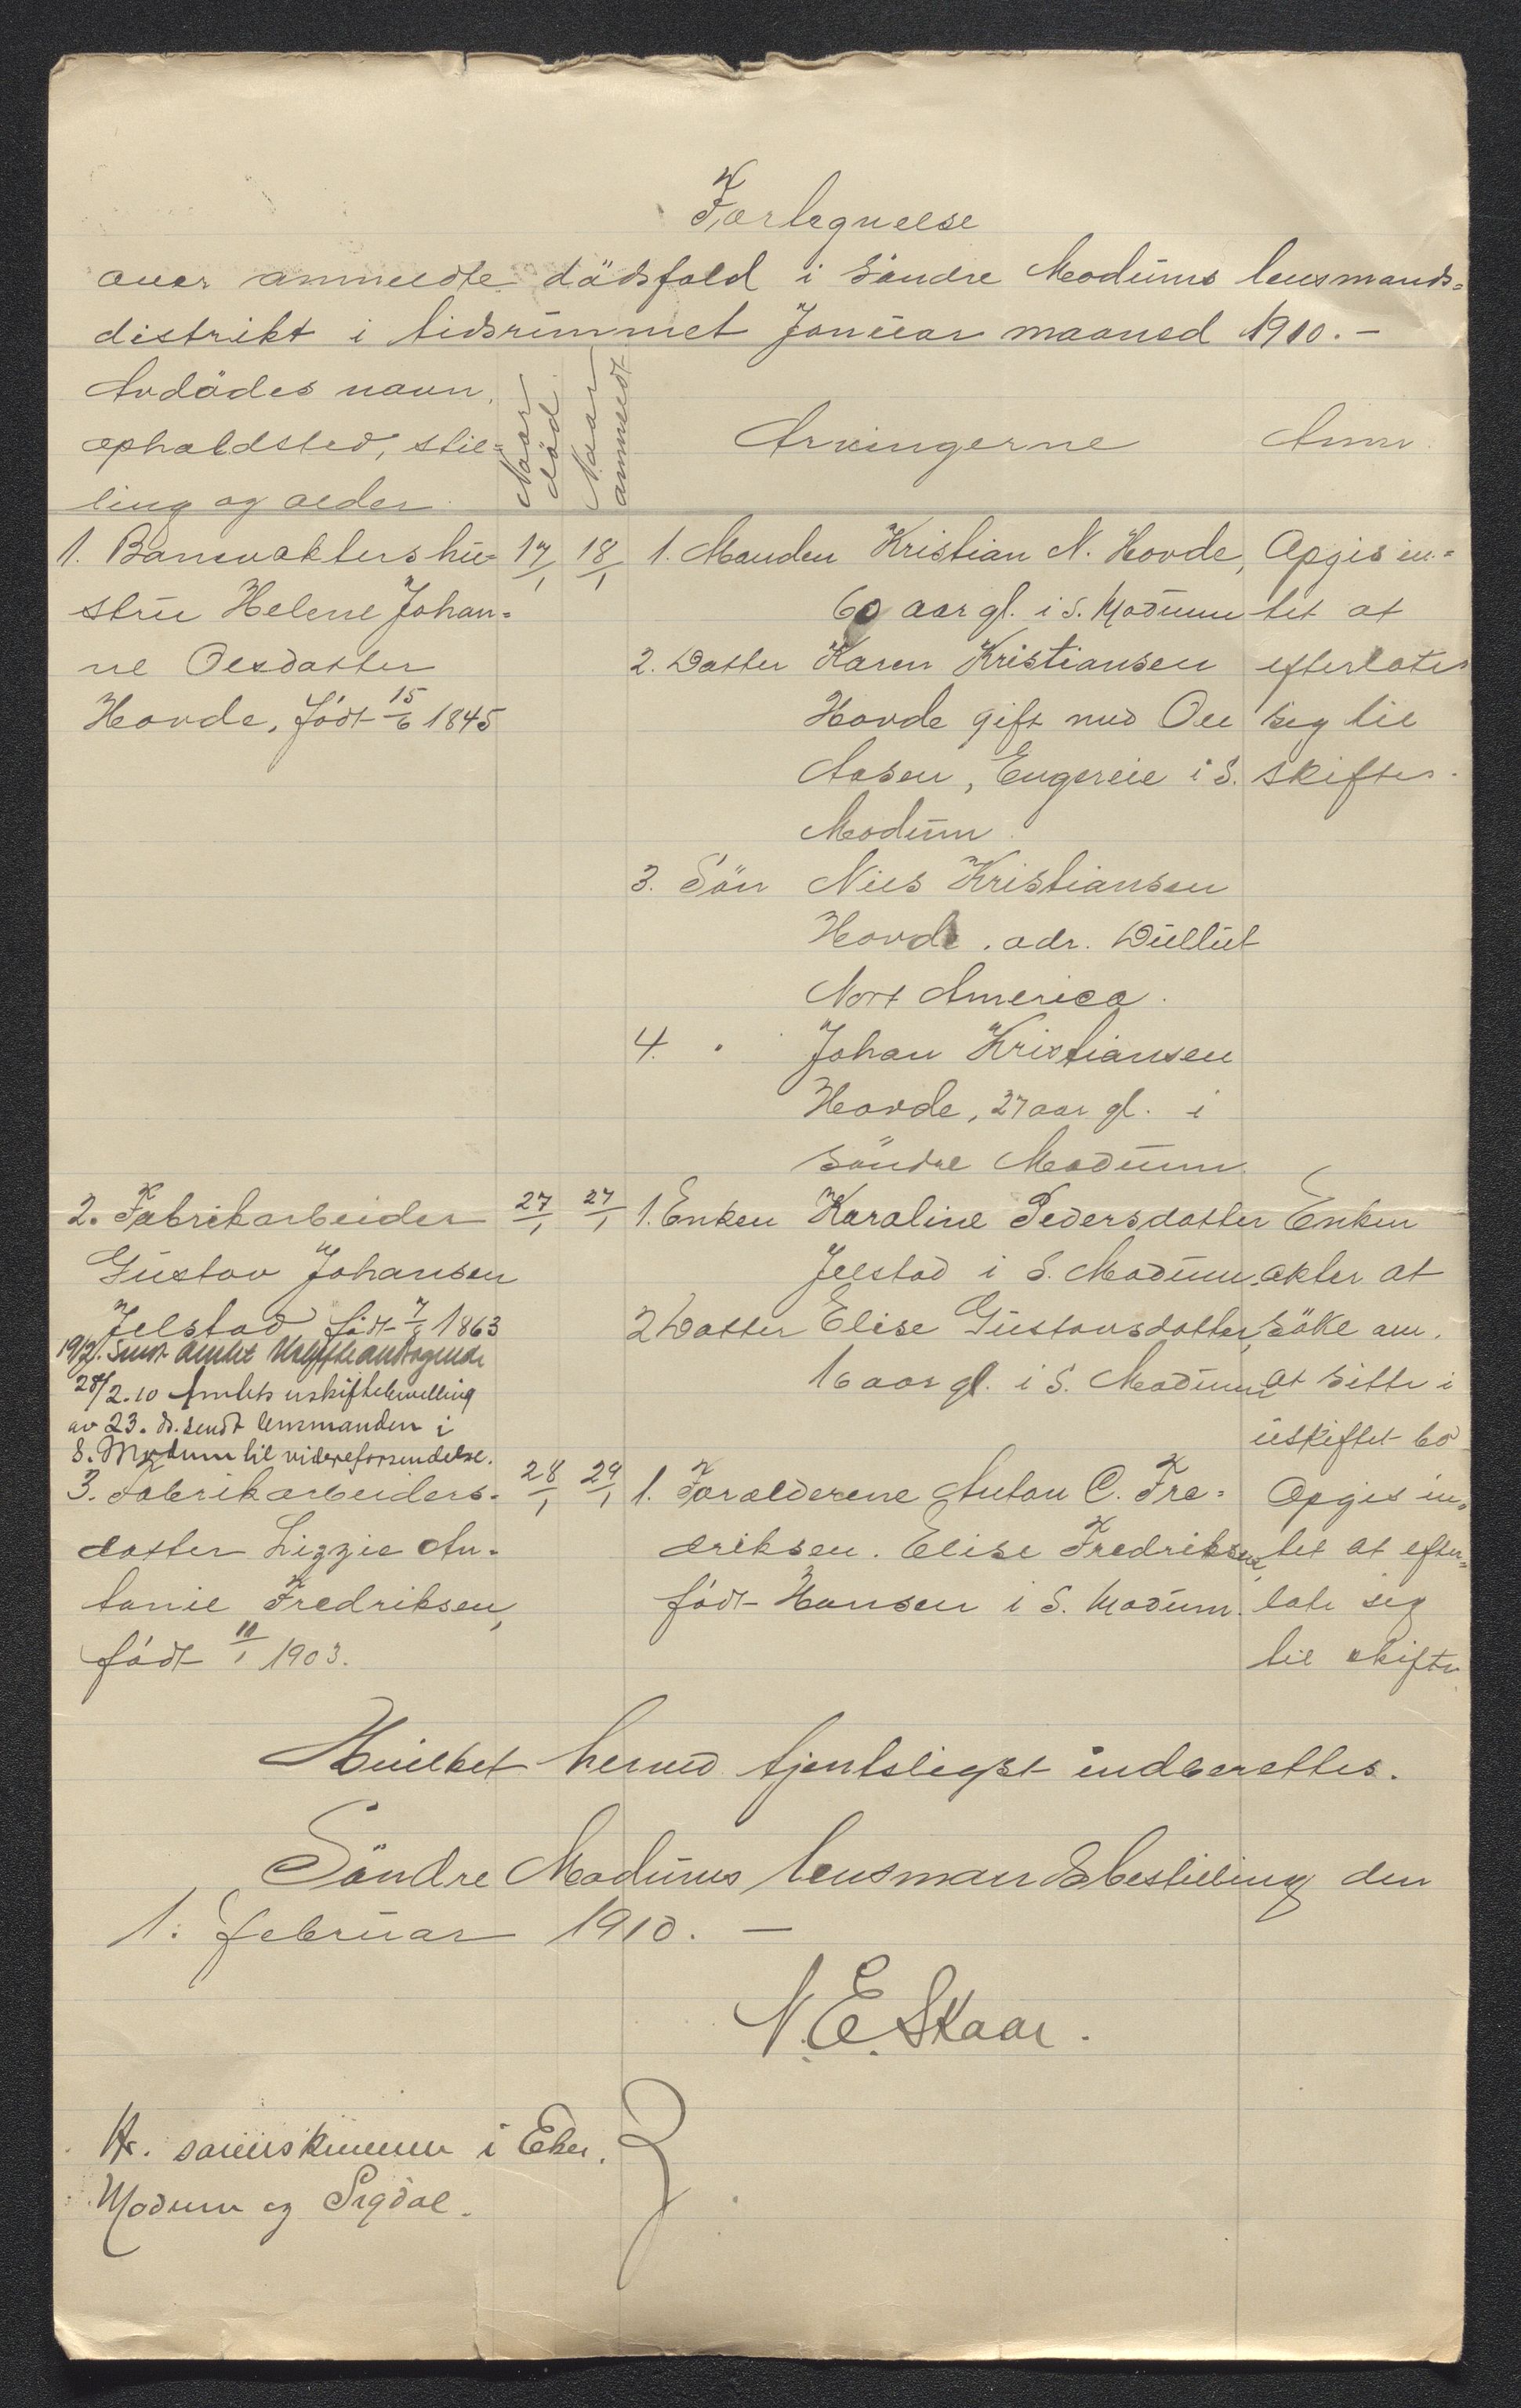 Fortegnelse
over anmeldte dödsfald i Söndre Modums lensmands=
distrikt i tidsrummet Januar maaned 1910.-
Avdödes navn,
opholdsted, stil=
ling og alder.
Naar död.
Naar anmeldt
Arvingerne
Anm.
1. Banevokters hu=
stru Helene Johan=
ne Olsdatter
Hovde, født 15/6 1845
17/1
18/1
1. Manden Kristian N. Hovde,
60 aar gl. i S. Modum
2. Datter Karen Kristiansen
Hovde gift med Ole
Aasen, Engereie i S.
Modum.
3. Sön Nils Kristiansen
Hovde. adr. Dullut
Nort America.
4. " Johan Kristiansen
Hovde, 27 aar gl. i
Söndre Modum.
Opgis in=
tet at
efterlates
sig til
skifte.
2. Fabrikarbeider
Gustav Johansen
Jelstad født 7/8 1863
19/2. sendt amtet
28/2.10 Amtets uskiftebevilling
av 23. ds. sendt lensmanden i
S. Modum til videreforsendelse.
27/1
27/1
1. Enken Karoline Pedersdatter
Jelstad i S. Modum.
2 Datter Elise Gustavsdatter,
16 aar gl. i S. Modum
Enken
akter at
söke om
at sitte i
uskiftet bo
3. Fabrikarbeiders=
datter Lizzie An=
tonie Fredriksen,
født 11/1 1903.
28/1
29/1
1. Forælderene Anton C. Fre=
driksen. Elise Fredriksen,
født Hansen i S. Modum.
Opgis in=
tet at efter=
late sig
til skifte
Hvilket herved tjenstligst indberettes.
Söndre Modums lensmandsbestilling den
1. februar 1910. —
N. E. Skaar.
Hr. sorenskriveren i Eker,
Modum og Sigdal.